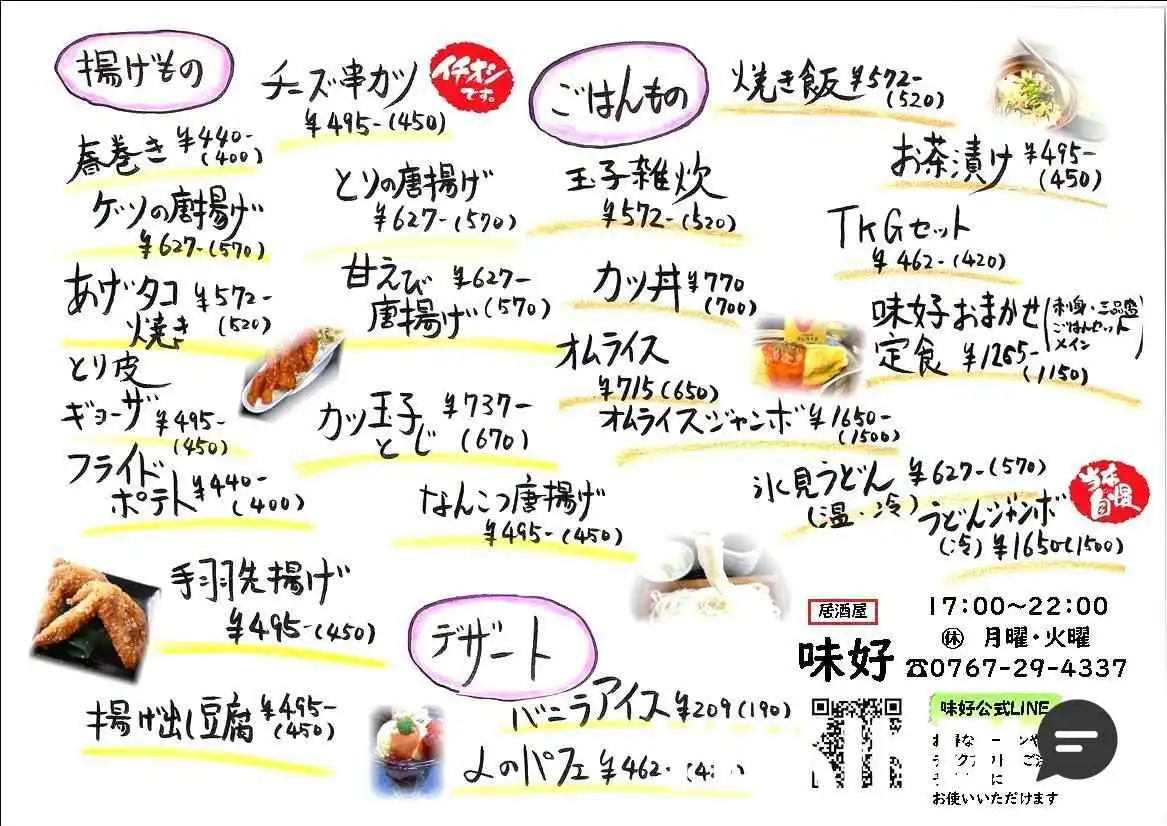 揚げもの
チーズ串カツ
イチオシ
です。
¥495-(450)
春巻き ¥440-
(400)
ゲソの唐揚げ
¥627-(570)
とりの唐揚げ
¥627-(570)
あげタコ ¥572-
焼き (520)
甘えび ¥627-
唐揚げ (570)
とり皮
ギョーザ ¥495-
(450)
カツ玉子 ¥737-
とじ (670)
フライド
ポテト ¥440-
(400)
なんこつ唐揚げ
¥495-(450)
手羽先揚げ
¥495-(450)
揚げ出し豆腐 ¥495-
(450)
ごはんもの
焼き飯 ¥572-
(520)
お茶漬け ¥495-
(450)
玉子雑炊
¥572-(520)
TKGセット
¥462-(420)
カツ丼 ¥770
(700)
味好おまかせ
定食 ¥1265-
(1150)
ごはんセット
メイン
オムライス
¥715(650)
オムライスジャンボ ¥1650-
(1500)
氷見うどん ¥627-(570)
(温・冷)
うどんジャンボ
(冷) ¥1650(1500)
当店
自慢
デザート
バニラアイス ¥209(190)
のパフェ ¥462-
居酒屋
味好
17:00～22:00
㊡ 月曜・火曜
☎0767-29-4337
味好公式LINE
お使いいただけます